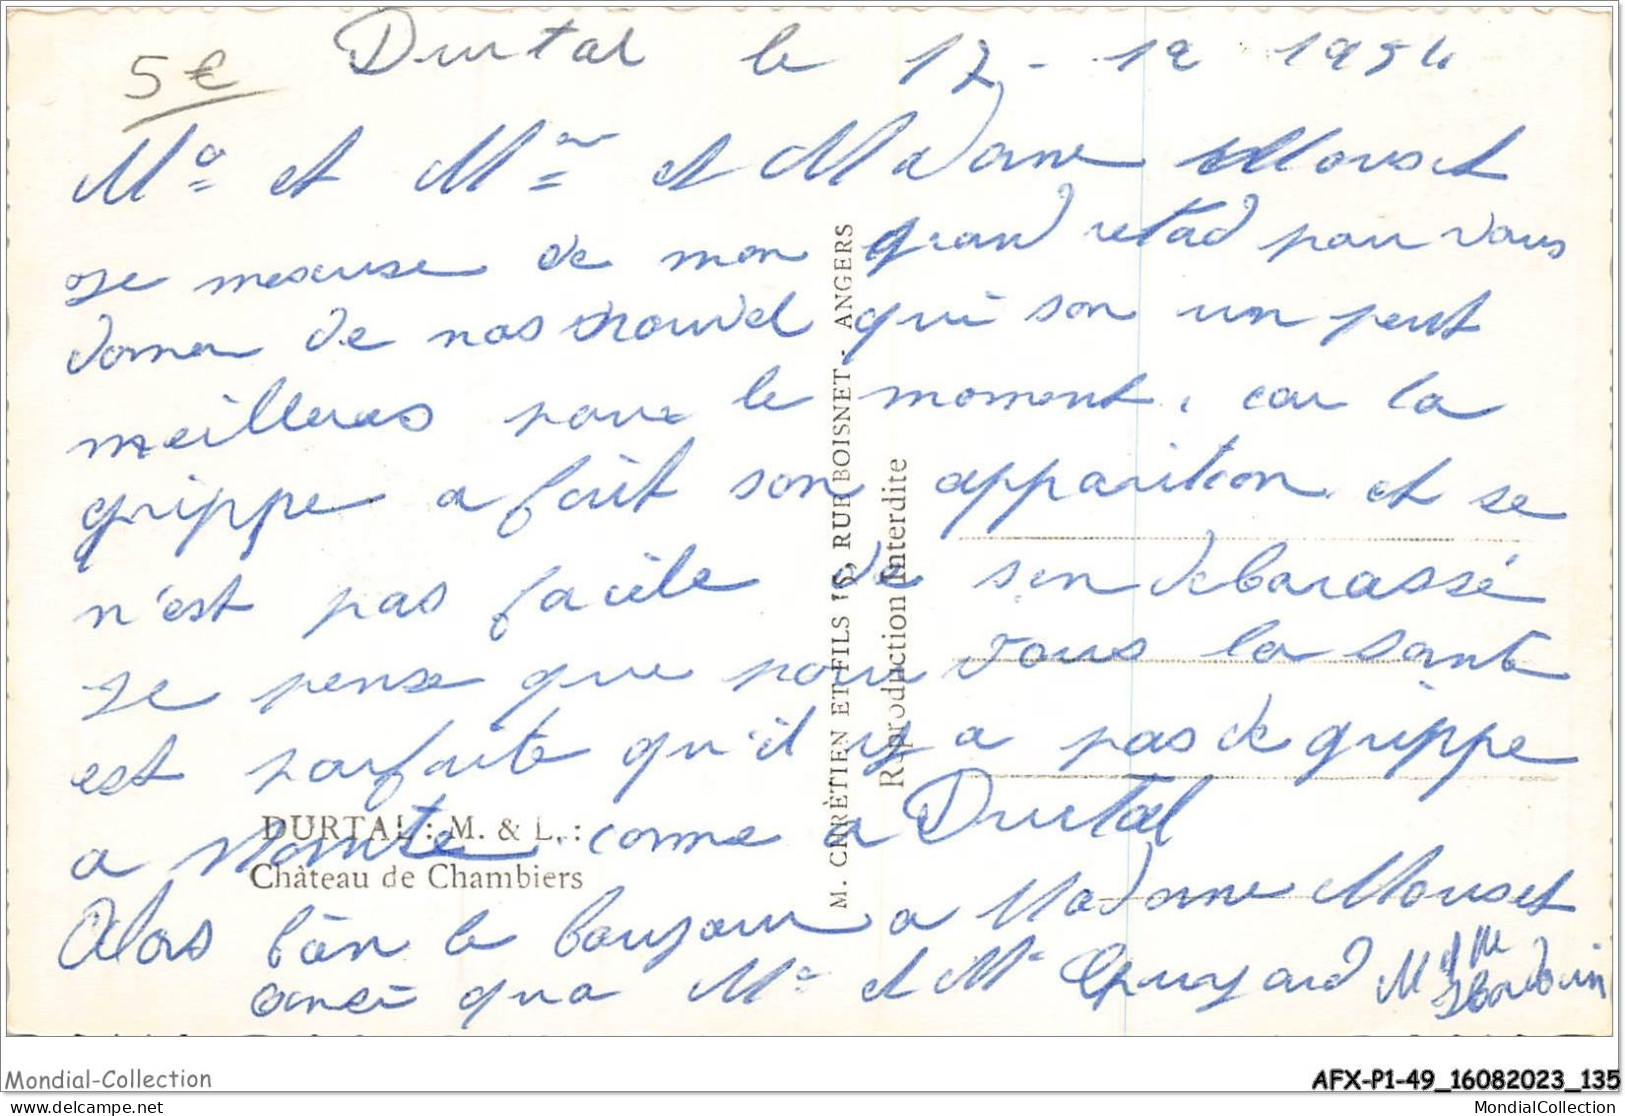 5€
Durtal le 17-12 1954
Mr et Mme et Madame Mouset
Je mexcuse de mon grand retad pour vous
donner de nos nouvel qui son un peut
meilleures pour le moment, car la
grippe a fait son apparition et se
n'est pas facile de sen debarassé
Je pense que pour vous la santé
est parfaite qu'il y a pas de grippe
a comme a Durtal
Alors bien le bonjour a Madame Mouset
ainsi qua Mr et Mme Guyard M et Me
DURTAL : M. & L. :
Château de Chambiers
M. CHRÈTIEN ET FILS 15, RUE BOISNET - ANGERS
Reproduction Interdite
Mondial-Collection
AFX-P1-49_16082023_135
delcampe.net
MondialCollection